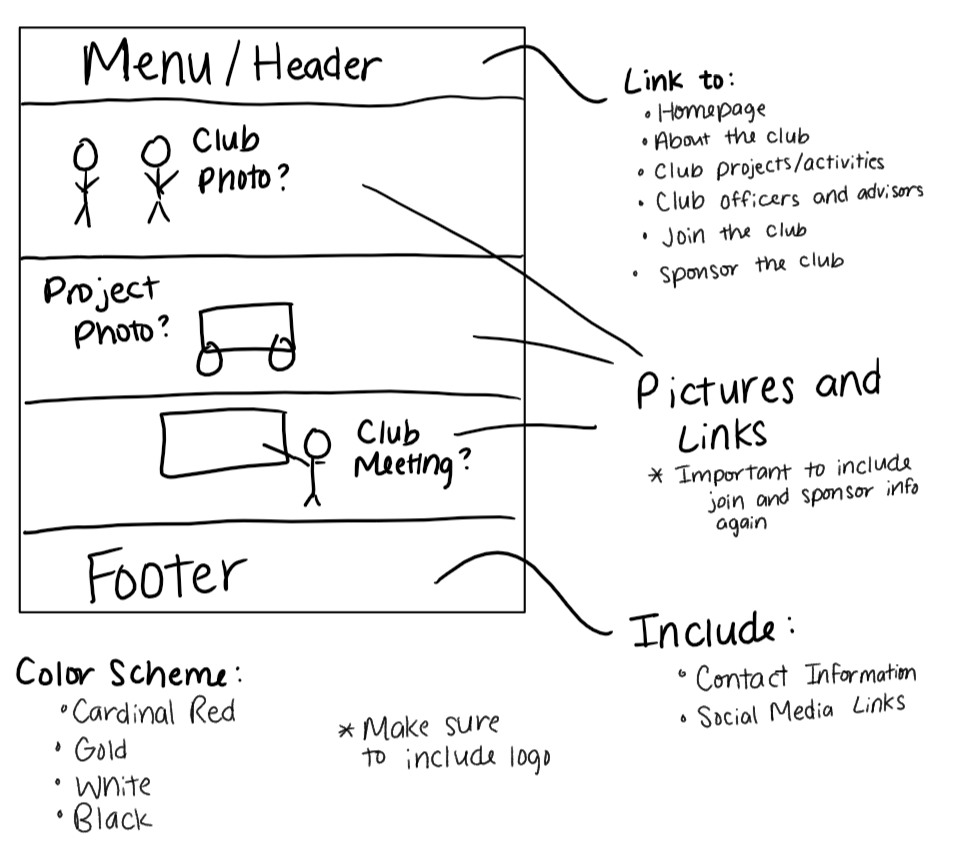 Menu / Header
Club
Photo?
Project
Photo?
Club
Meeting?
Footer
Link to:
• Homepage
• About the club
• Club projects/activities
• Club officers and advisors
• Join the club
• Sponsor the club
Pictures and
Links
* Important to include
join and sponsor info
again
Include:
• Contact Information
• Social Media Links
Color Scheme:
• Cardinal Red
• Gold
• White
• Black
* Make sure
to include logo